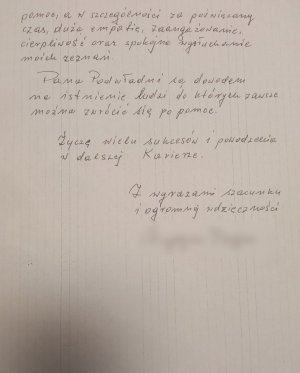 pomoc, a w szczególności za poświęcony
czas, dużą empatię, zaangażowanie,
cierpliwość oraz spokojne wysłuchanie
moich zeznań.
Pana Podwładni są dowodem
na istnienie ludzi do których zawsze
można zwrócić się po pomoc.
Życzę wielu sukcesów i powodzenia
w dalszej Karierze.
Z wyrazami szacunku
i ogromną wdzięczności